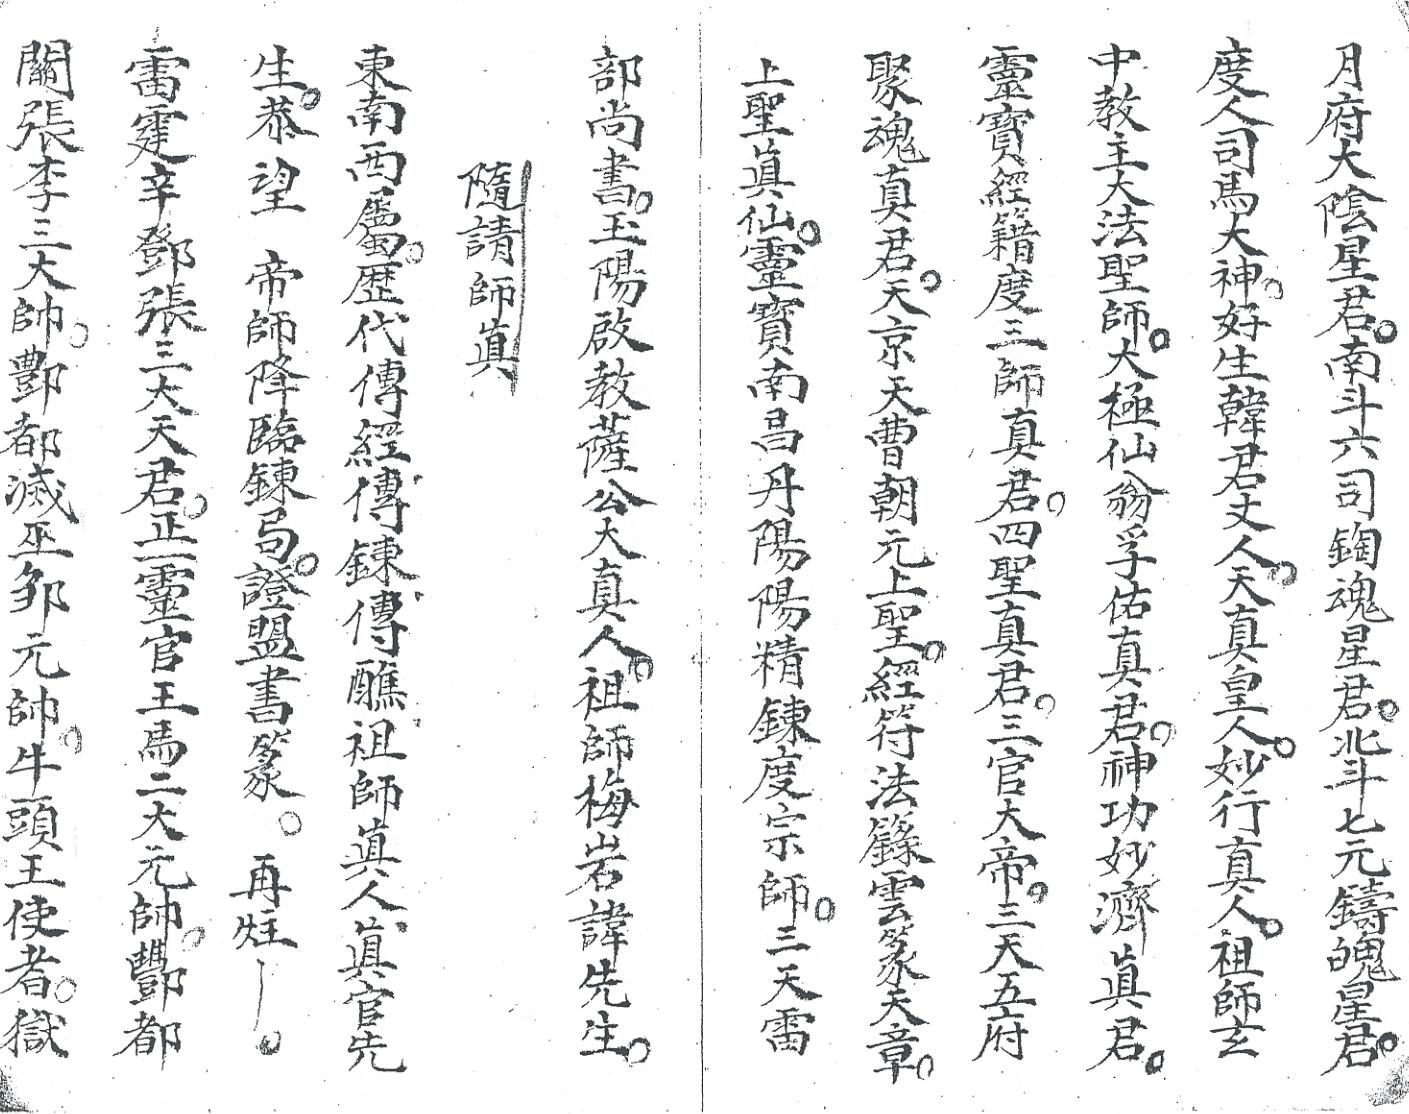 月府大陰星君。南斗六司鍧魂星君。北斗七元鑄魄星君。
度人司馬大神。好生韓君丈人。天真皇人。妙行真人。祖師玄
中教主大法聖師。大極仙翁孚佑真君。神功妙濟真君。
靈寶經籍度三師真君。四聖真君。三官大帝。三天五府
聚魂真君。天京天曹朝元上聖。經符法籙雲篆天章。
上聖眞仙。靈寶南昌丹陽陽精鍊度宗師。三天雷
部尚書。玉陽啟教薩公大真人。祖師梅岩諱先生。
隨請師眞
東南西屬。歷代傳經傳鍊傳醮祖師眞人。眞官先
生。恭望 帝師降臨鍊局。證盟書篆。再炷〡。
雷霆辛鄧張三大天君。正一靈官王馬二大元帥。酆都
關張李三大帥。酆都滅巫邹元帥。牛頭王使者。獄